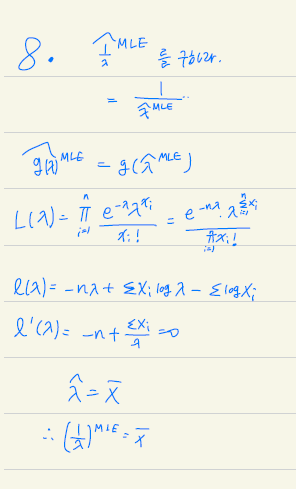 8. $\widehat{\frac{1}{\lambda}}^{MLE}$ 를 구하여라.
$= \frac{1}{\hat{\lambda}^{MLE}}$
$\widehat{g(\lambda)}^{MLE} = g(\hat{\lambda}^{MLE})$
$L(\lambda) = \prod_{i=1}^{n} \frac{e^{-\lambda} \lambda^{x_i}}{x_i!} = \frac{e^{-n\lambda} \cdot \lambda^{\sum_{i=1}^{n} x_i}}{\prod_{i=1}^{n} x_i!}$
$l(\lambda) = -n\lambda + \Sigma x_i \log \lambda - \Sigma \log x_i$
$l'(\lambda) = -n + \frac{\Sigma x_i}{\lambda} = 0$
$\hat{\lambda} = \bar{x}$
$\therefore \left(\frac{1}{\lambda}\right)^{MLE} = \bar{x}$